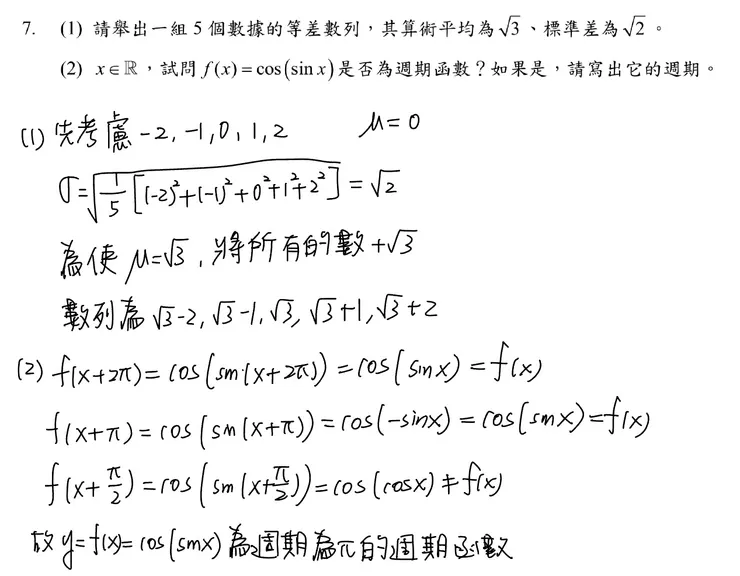 7. (1) 請舉出一組 5 個數據的等差數列，其算術平均為 √3 、標準差為 √2 。
(2) x∈ℝ，試問 f(x) = cos(sin x) 是否為週期函數？如果是，請寫出它的週期。
(1) 先考慮 -2, -1, 0, 1, 2   μ=0
σ=√(1/5[(-2)²+(-1)²+0²+1²+2²]) = √2
為使 μ=√3, 將所有的數+√3
數列為 √3-2, √3-1, √3, √3+1, √3+2
(2) f(x+2π) = cos(sin(x+2π)) = cos(sinx) = f(x)
f(x+π) = cos(sin(x+π)) = cos(-sinx) = cos(sinx) = f(x)
f(x+π/2) = cos(sin(x+π/2)) = cos(cosx) ≠ f(x)
故 y=f(x)= cos(sinx) 為週期為π的週期函數